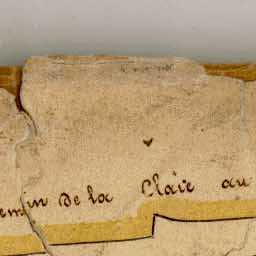 emin de la Claie au